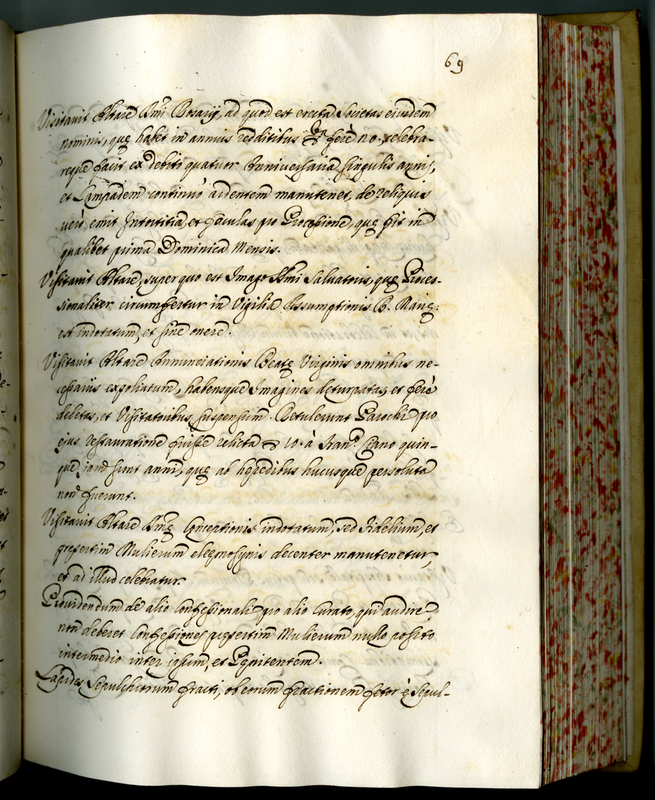 69
Visitavit Altare SSmi Rosarij, ad quod est erecta Societas eiusdem
nominis, quę habet in annuis redditibus fere no. celebra-
reque facit ex debiti quatuor Anniversaria singulis annis,
et Lampadem continuò ardentem manutenet, de reliquis
verò emit Intortitia, et faculas pro Processione, quę fit in
qualibet prima Dominica Mensis.
Visitavit Altare, super quo est Imago SSmi Salvatoris, quę Proces-
sionaliter circumfertur in Vigilia Assumptionis B. Marię:
est indotatum, et sine onere.
Visitavit Altare Annunciationis Beatę Virginis omnibus ne-
cessariis expoliatum, habensque Imagines deturpatas, et ferè
deletas, et Visitatoribus suspensum. Retulerunt Parochi pro
ejus restauratione fuisse relicta 10. à Fran.º Cano quin-
que jam sunt anni, quę ab hęredibus hucusque persoluta
non fuerunt.
Visitavit Altare Conceptionis indotatum, sed Fidelium, et
pręsertim Mulierum eleęmosynis decenter manutenetur,
et ad illud celebratur.
Providendum de alio Confessionali pro alio Curato, qui audire
non deberet Confessiones pręsertim Mulierum nullo posito
intermedio inter ipsum, et Pęnitentem.
Lapides Sepulchrorum fracti, ob eorum fractionem fetor è Sepul-